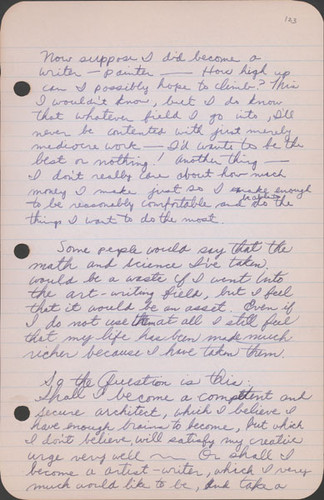 123
Now suppose I did become a
writer — painter — How high up
can I possibly hope to climb? This
I wouldn't know, but I do know
that whatever field I go into, I'll
never be contented with just merely
mediocre work — I'd want to be the
best or nothing! Another thing —
I don't really care about how much
money I make just so I make enough
to be reasonably comfortable and do the
things I want to do the most.
Some people would say that the
math and science I've taken
would be a waste if I went into
the art-writing field, but I feel
that it would be an asset. Even if
I do not use them at all I still feel
that my life has been made much
richer because I have taken them.
So the Question is this:
Shall I become a competent and
secure architect, which I believe I
have enough brains to become, but which
I don't believe will satisfy my creative
urge very well — Or shall I
become a artist-writer, which I very
much would like to be, and take a